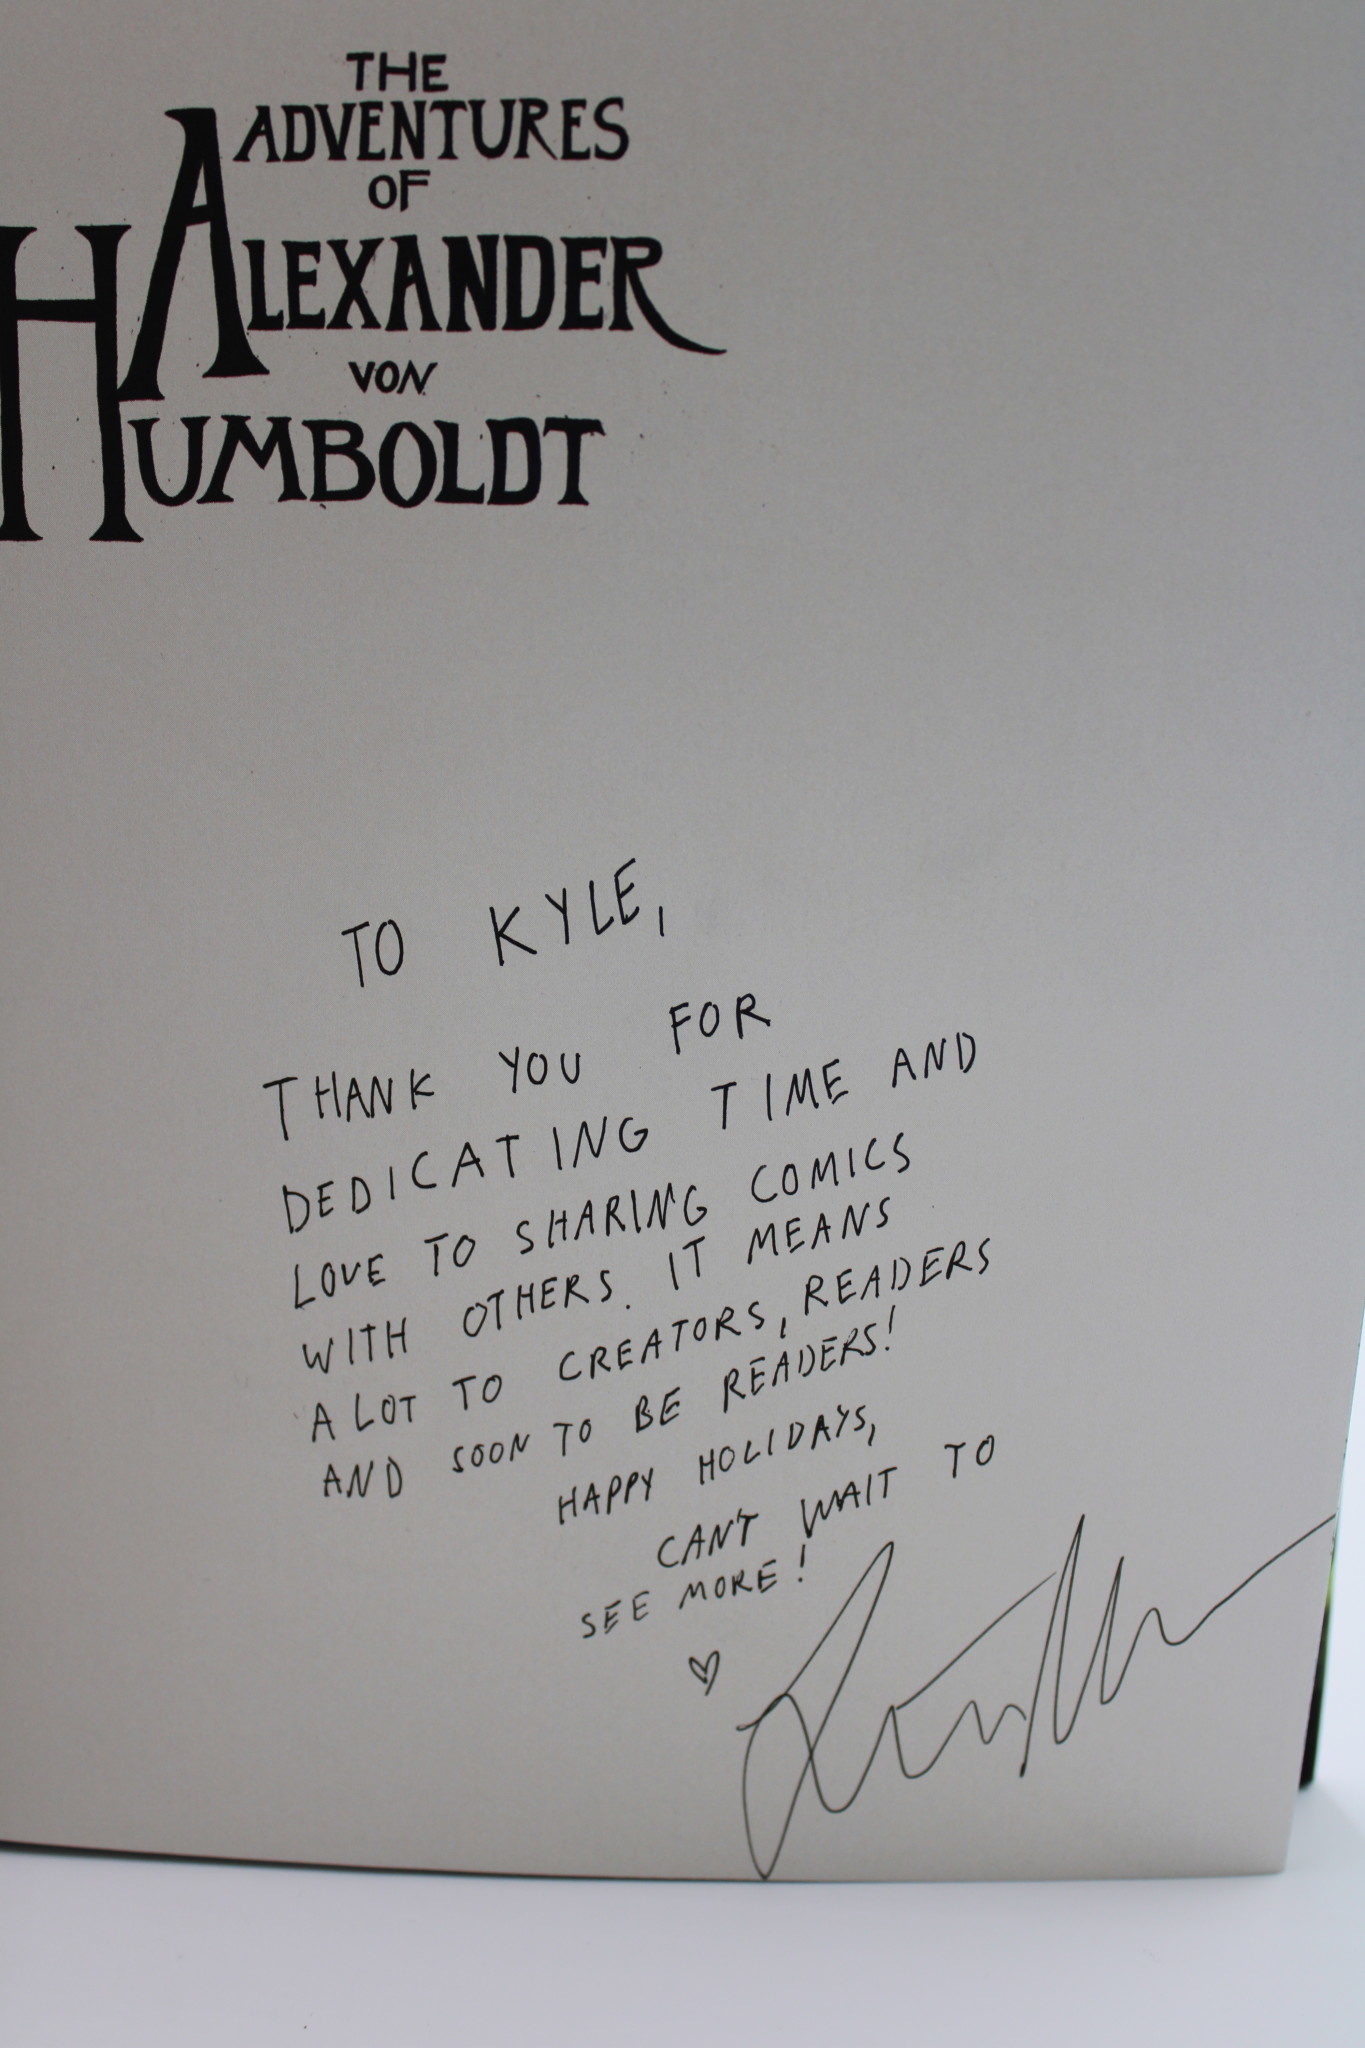 THE
ADVENTURES
OF
ALEXANDER
VON
HUMBOLDT
TO KYLE,
THANK YOU FOR
DEDICATING TIME AND
LOVE TO SHARING COMICS
WITH OTHERS. IT MEANS
A LOT TO CREATORS, READERS
AND SOON TO BE READERS!
HAPPY HOLIDAYS,
CAN'T WAIT TO
SEE MORE!